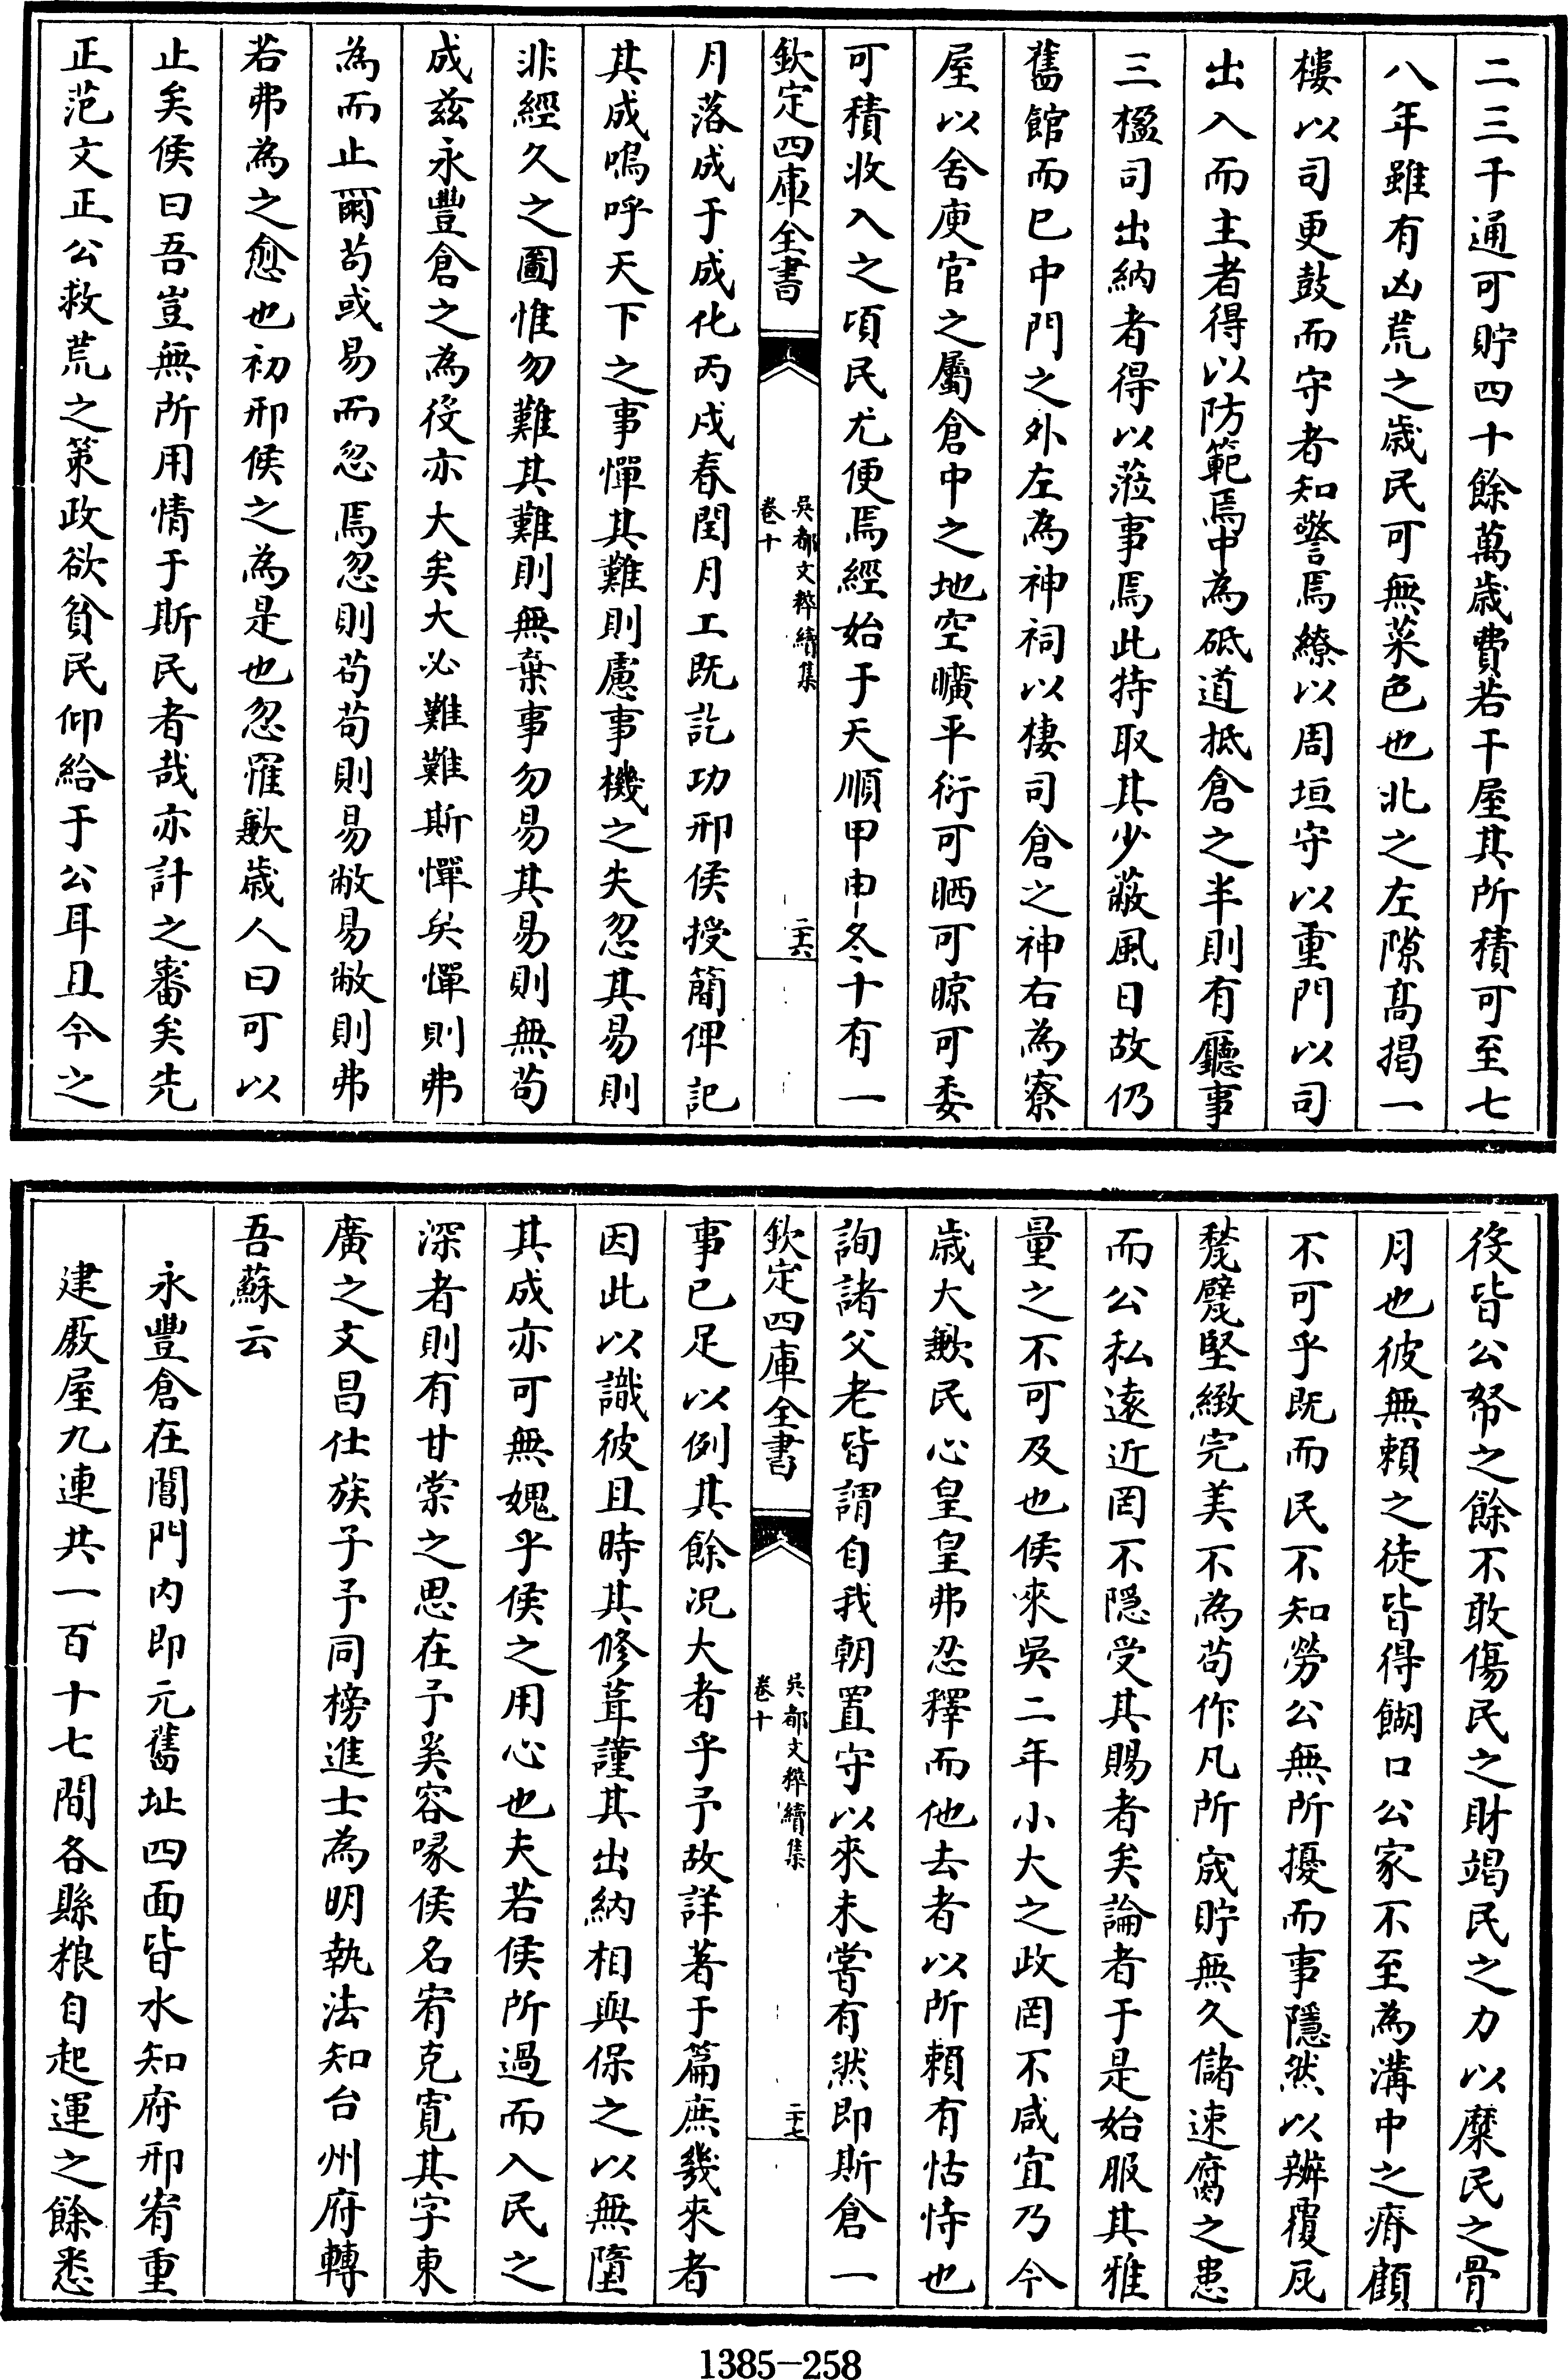 二三千通可貯四十餘萬歳費若干屋其所積可至七
八年雖有凶荒之歳民可無菜色也北之左隙髙揭一
樓以司更鼓而守者知警焉繚以周垣守以重門以司
出入而主者得以防範焉中為砥道抵倉之半則有廳事
三楹司出納者得以蒞事焉此特取其少蔽風日故仍
舊館而已中門之外左為神祠以棲司倉之神右為寮
屋以舍庾官之屬倉中之地空曠平衍可晒可晾可委
可積收入之頃民尤便焉經始于天順甲申冬十有一
欽定四庫全書
吳都文粹續集
卷十
二十六
月落成于成化丙戍春閏月工既訖功邢侯授簡俾記
其成嗚呼天下之事憚其難則慮事機之失忽其易則
非經久之圖惟勿難其難則無棄事勿易其易則無茍
成兹永豐倉之為役亦大矣大必難難斯憚矣憚則弗
為而止爾茍或易而忽焉忽則茍茍則易敝易敝則弗
若弗為之愈也初邢侯之為是也忽罹歉歳人曰可以
止矣侯曰吾豈無所用情于斯民者哉亦計之審矣先
正范文正公救荒之策政欲貧民仰給于公耳且今之
役皆公帑之餘不敢傷民之財竭民之力以糜民之骨
月也彼無頼之徒皆得餬口公家不至為溝中之瘠顧
不可乎既而民不知勞公無所擾而事隱然以辦覆瓦
甃甓堅緻完美不為茍作凡所宬貯無久儲速腐之患
而公私逺近罔不隠受其賜者矣論者于是始服其雅
量之不可及也侯來吳二年小大之政罔不咸宜乃今
歳大歉民心皇皇弗忍釋而他去者以所頼有怙恃也
詢諸父老皆謂自我朝置守以來未嘗有然即斯倉一
欽定四庫全書
吳都文粹續集
卷十
二十七
事已足以例其餘况大者乎予故詳著于篇庶幾來者
因此以識彼且時其修葺謹其出納相與保之以無墮
其成亦可無媿乎侯之用心也夫若侯所過而入民之
深者則有甘棠之思在予奚容喙侯名宥克寛其字東
廣之文昌仕族子予同榜進士為明執法知台州府轉
吾蘇云
永豐倉在閶門内即元舊址四面皆水知府邢宥重
建厫屋九連共一百十七間各縣粮自起運之餘悉
1385-258